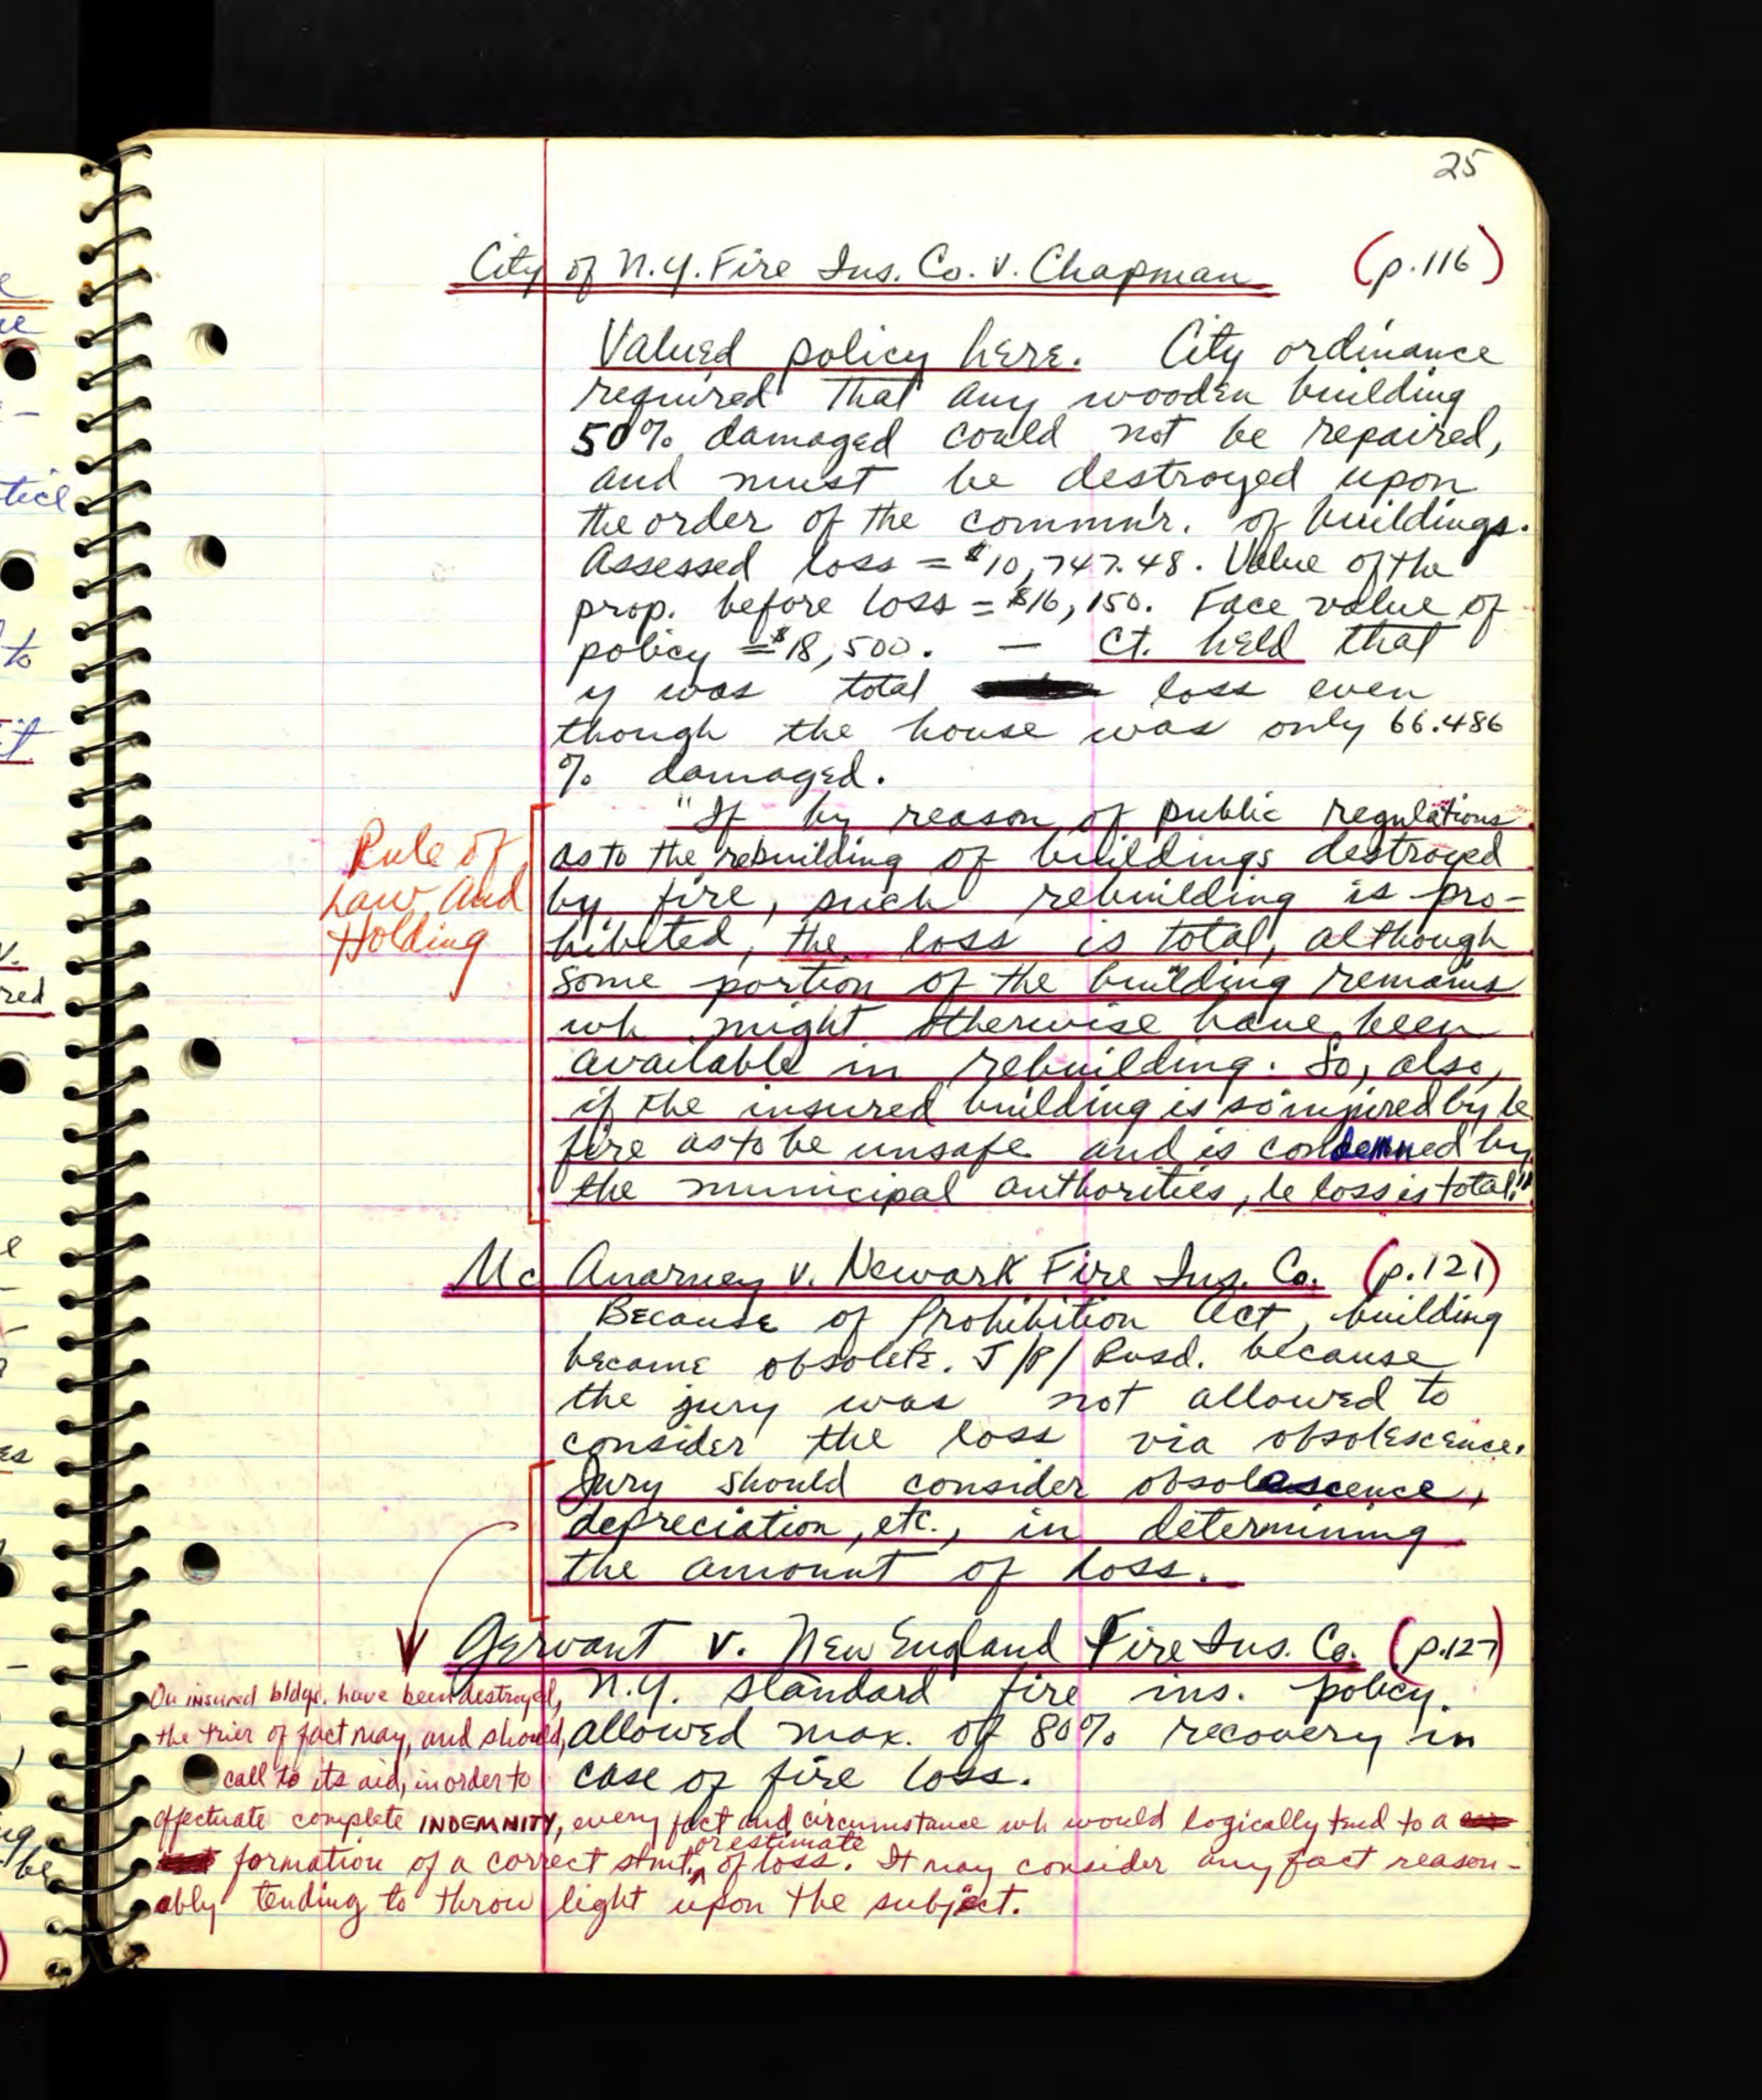 25
City of N.Y. Fire Ins. Co. v. Chapman (p.116)
Valued policy here. City ordinance
required that any wooden building
50% damaged could not be repaired,
and must be destroyed upon
the order of the commn'r. of buildings.
Assessed loss = $10,747.48. Value of the
prop. before loss = $16,150. Face value of
policy = $18,500. — Ct. held that
y was total loss even
though the house was only 66.486
% damaged.
Rule of
Law and
Holding
"If by reason of public regulations
as to the rebuilding of buildings destroyed
by fire, such rebuilding is pro-
hibited, the loss is total, although
some portion of the building remains
wh might otherwise have been
available in rebuilding. So, also,
if the insured building is so injured by le
fire as to be unsafe and is condemned by
the municipal authorities, le loss is total."
Mc Anarney v. Newark Fire Ins. Co. (p.121)
Because of Prohibition Act, building
became obsolete. J/P/ Rvsd. because
the jury was not allowed to
consider the loss via obsolescence.
Jury should consider obsolescence,
depreciation, etc., in determining
the amount of loss.
Gervant v. New England Fire Ins. Co. (p.127)
N.Y. standard fire ins. policy.
allowed max. of 80% recovery in
case of fire loss.
On insured bldgs. have been destroyed,
the trier of fact may, and should,
call to its aid, in order to
effectuate complete INDEMNITY, every fact and circumstance wh would logically tend to a
formation of a correct stmt. or estimate of loss. It may consider any fact reason-
ably tending to throw light upon the subject.